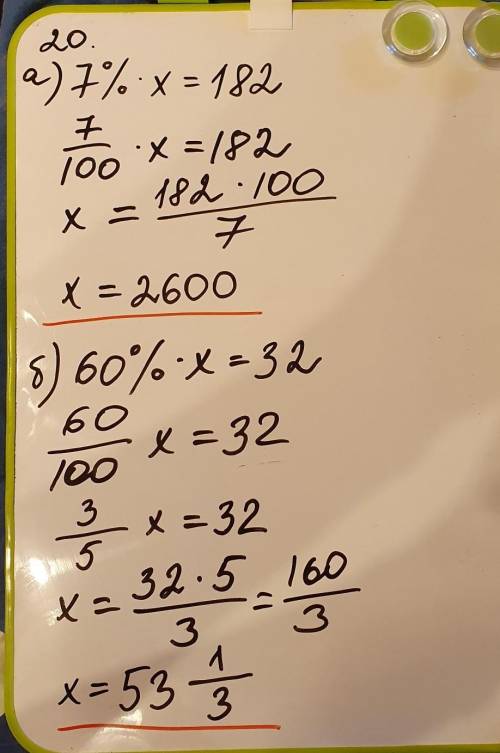 20.
а) 7% · x = 182
7/100 · x = 182
x = 182 · 100 / 7
x = 2600
б) 60% · x = 32
60/100 x = 32
3/5 x = 32
x = 32 · 5 / 3 = 160/3
x = 53 1/3